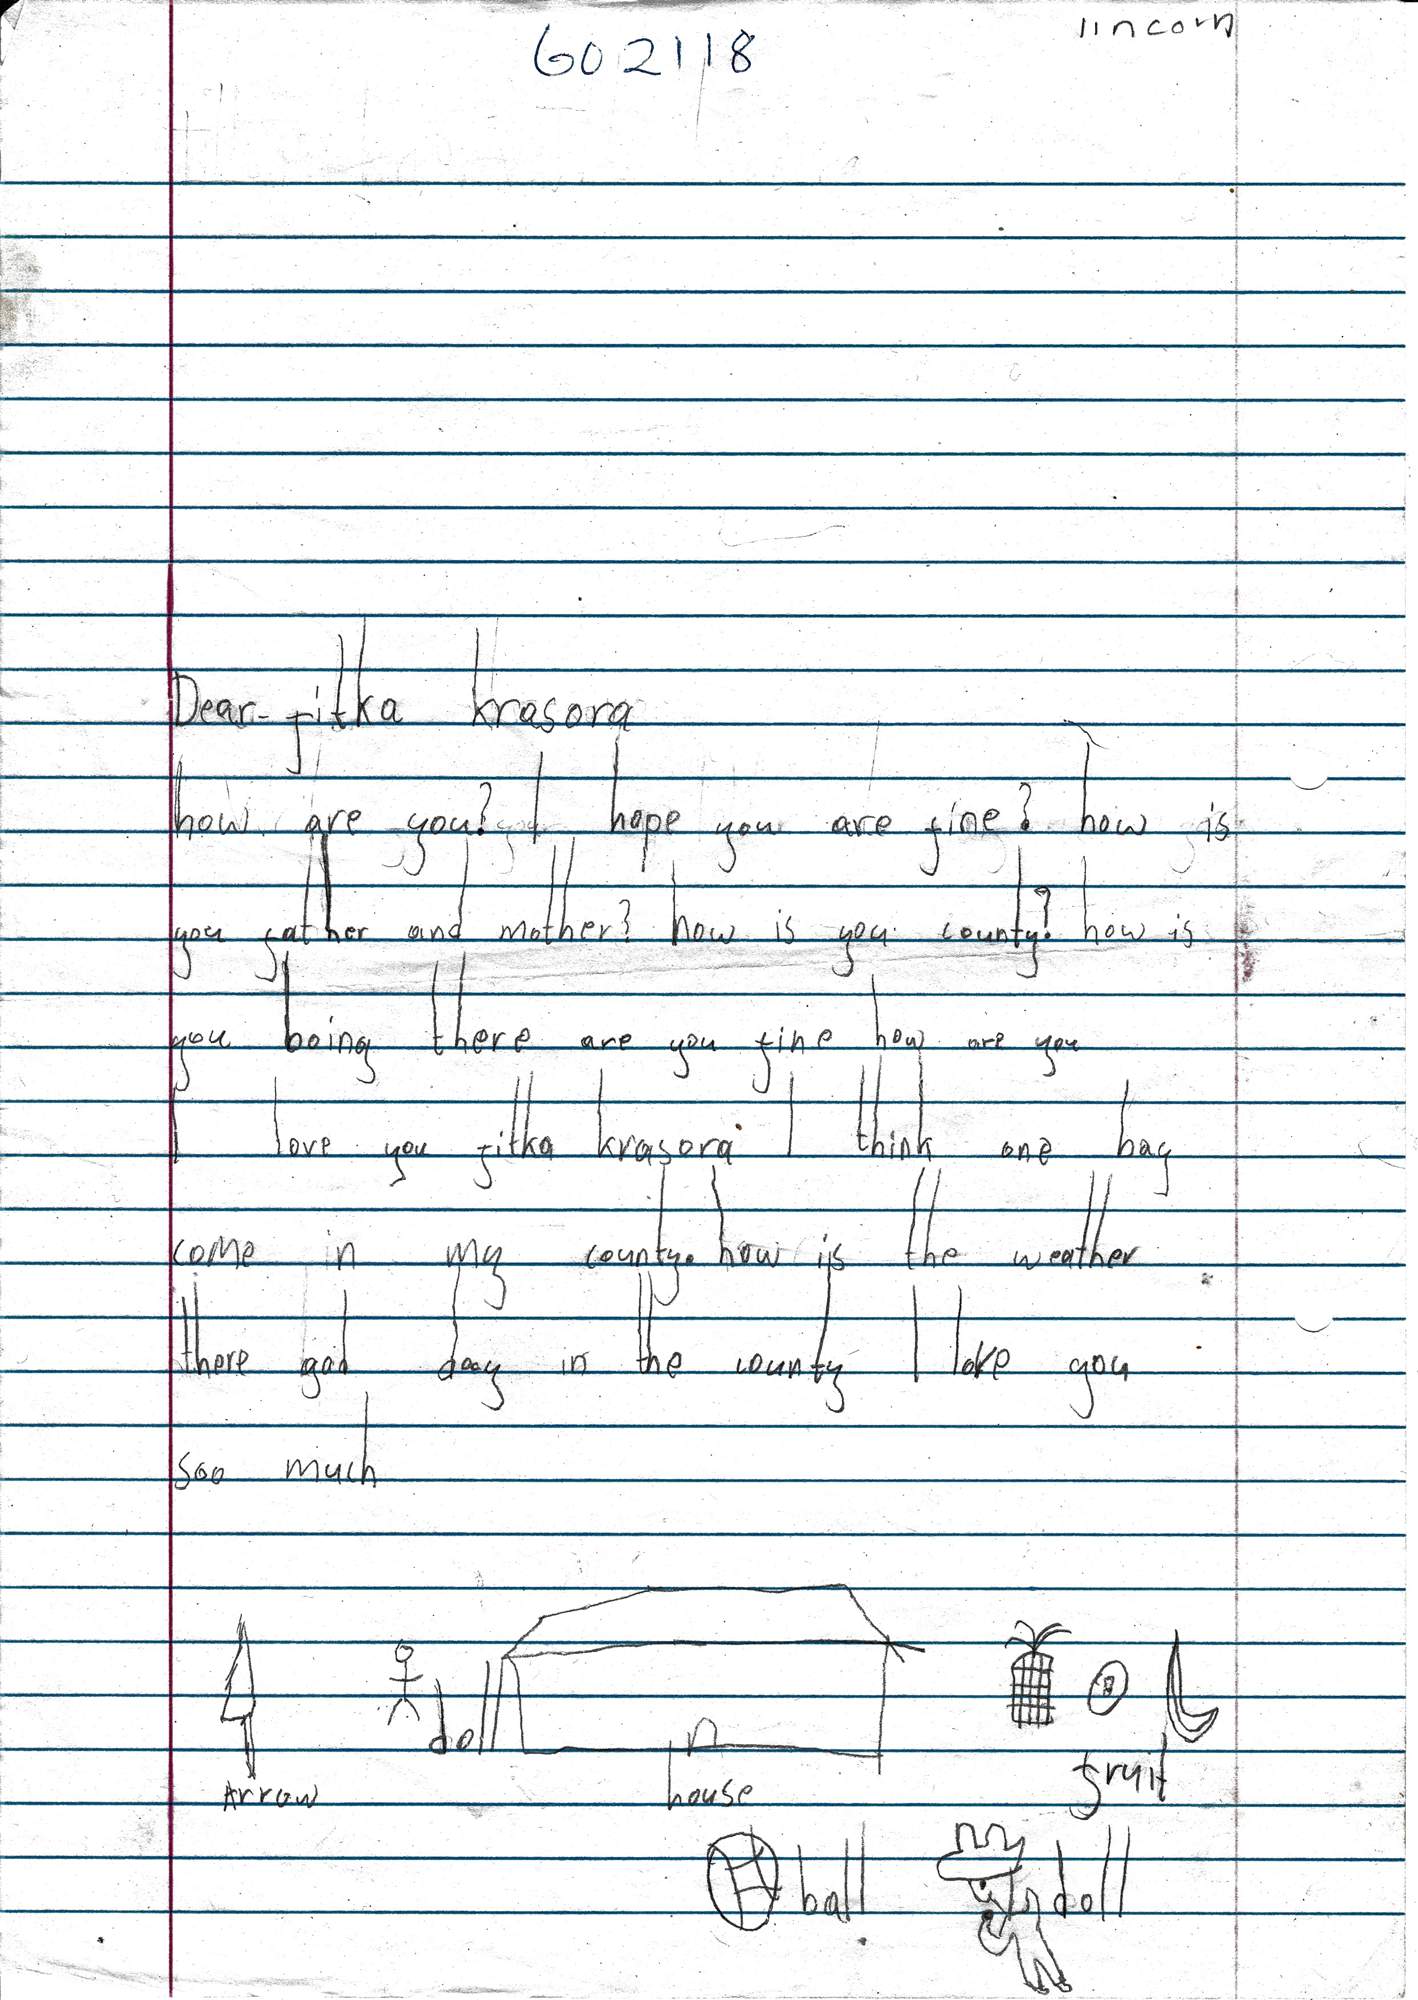 lincorn
602118
Dear jitka krasora
how are you? I hope you are fine? how is
you father and mother? how is you county? how is
you boing there are you fine how are you
I love you jitka krasora I think one bay
come in my county. how is the weather
there god day in the county I love you
soo much
doll
Arrow house fruit
ball doll